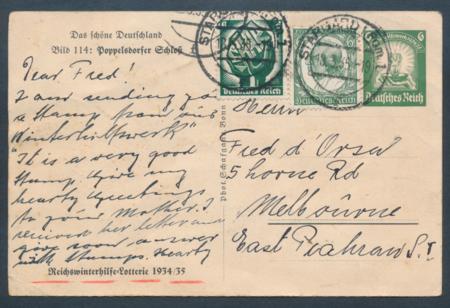 Das schöne Deutschland
Bild 114: Poppelsdorfer Schloß
Dear Fred!
I am sending you
a stamp from our
Winterhilfswerk"
"It is a very good
stamp. Give my
hearty Greetings
to your Mother. I
received her letter and
give soon answer
with stamps. Hearty
Reichswinterhilfe-Lotterie 1934/35
Phot. Schafgans, Bonn
STARGARD (Pom.)
Deutsches Reich
STARGARD (Pom.)
Deutsches Reich
6
Deutsches Reich
Herrn
Fred d'Orsa
5 horne Rd
Melbourne
East Prahran S.1